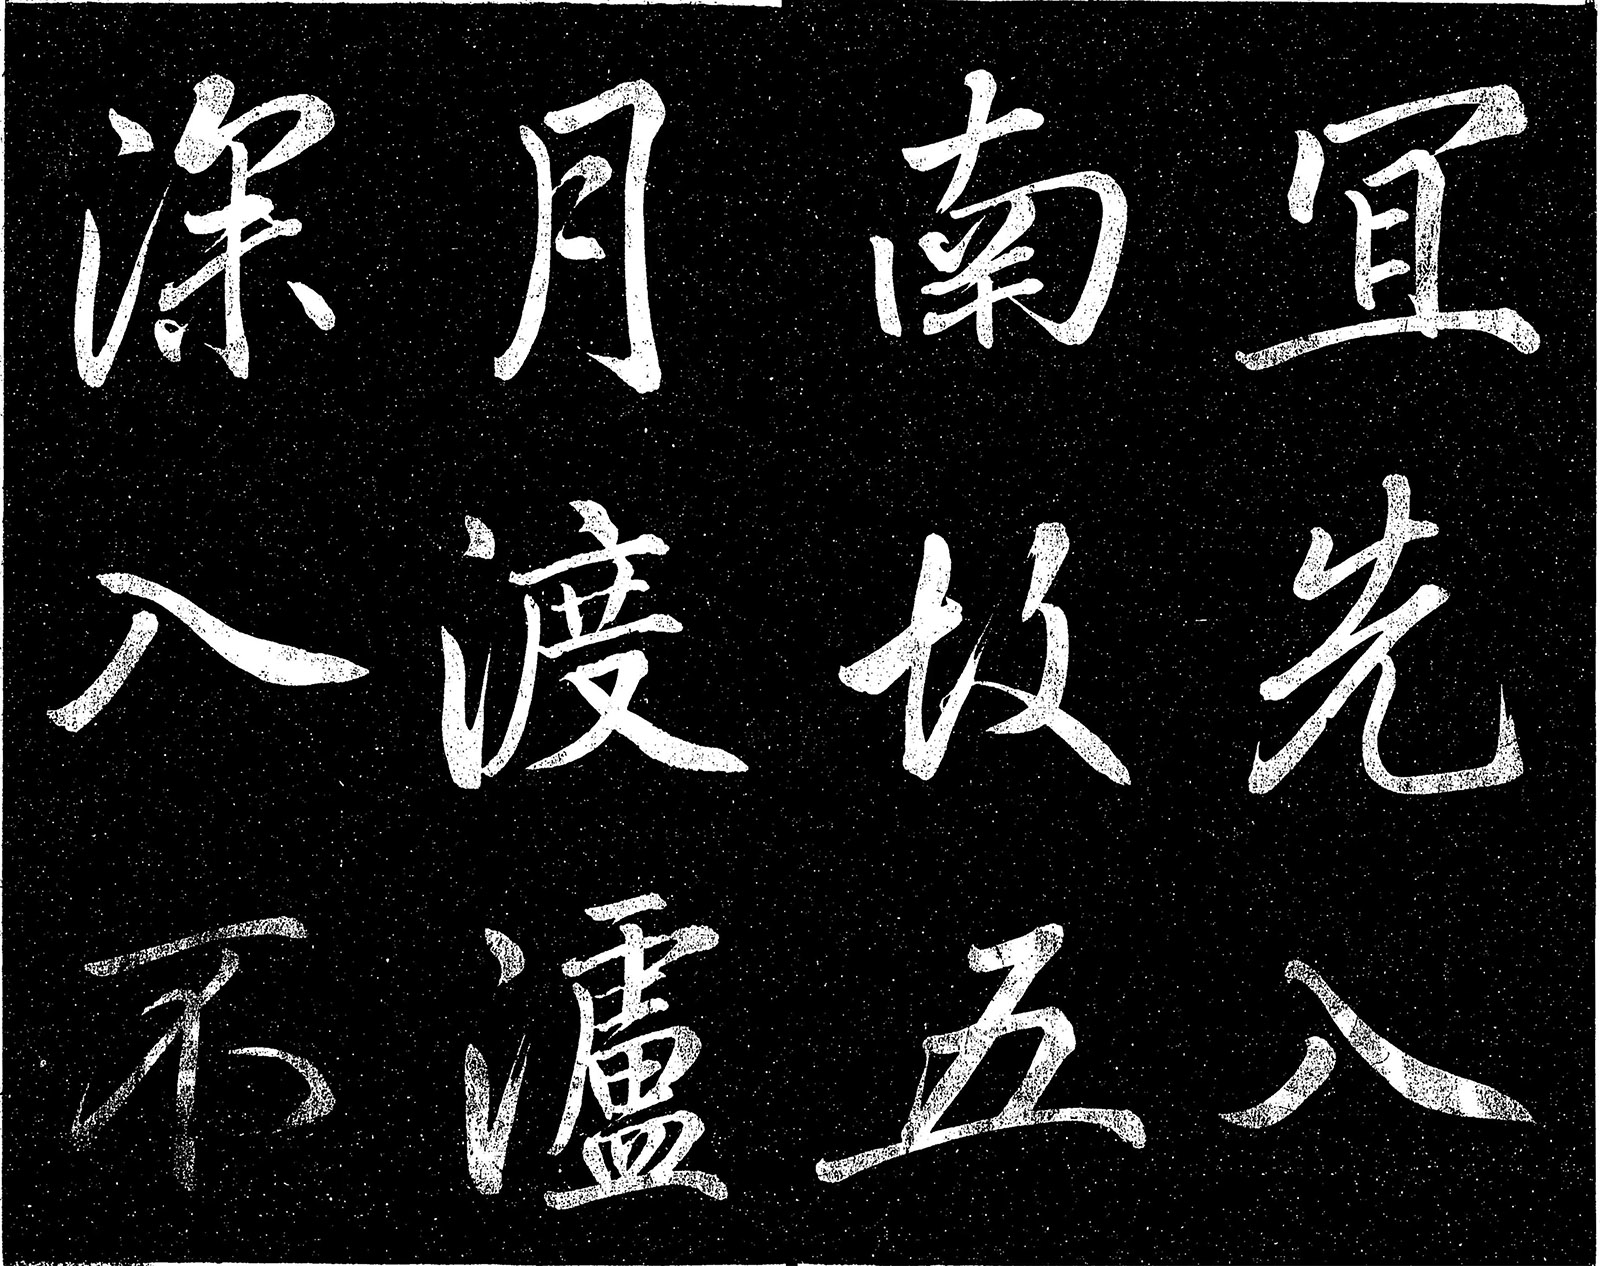 宜先入
南故五
月渡瀘
深入不